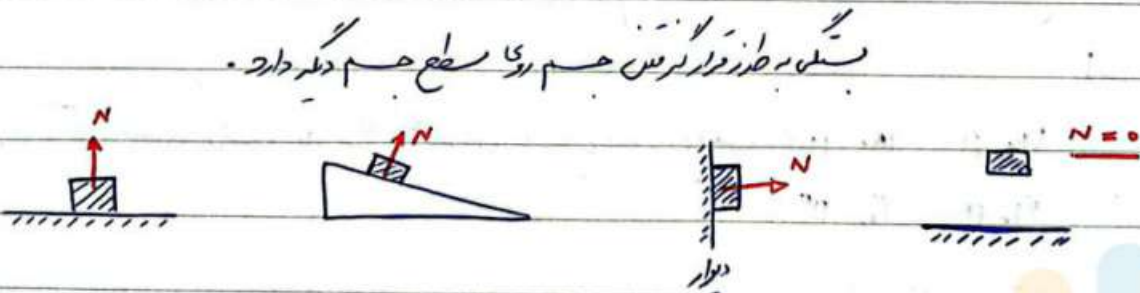 بستگی به طرز قرار گرفتن جسم روی سطح جسم دیگر دارد.
N
N
N
N = 0
دیوار